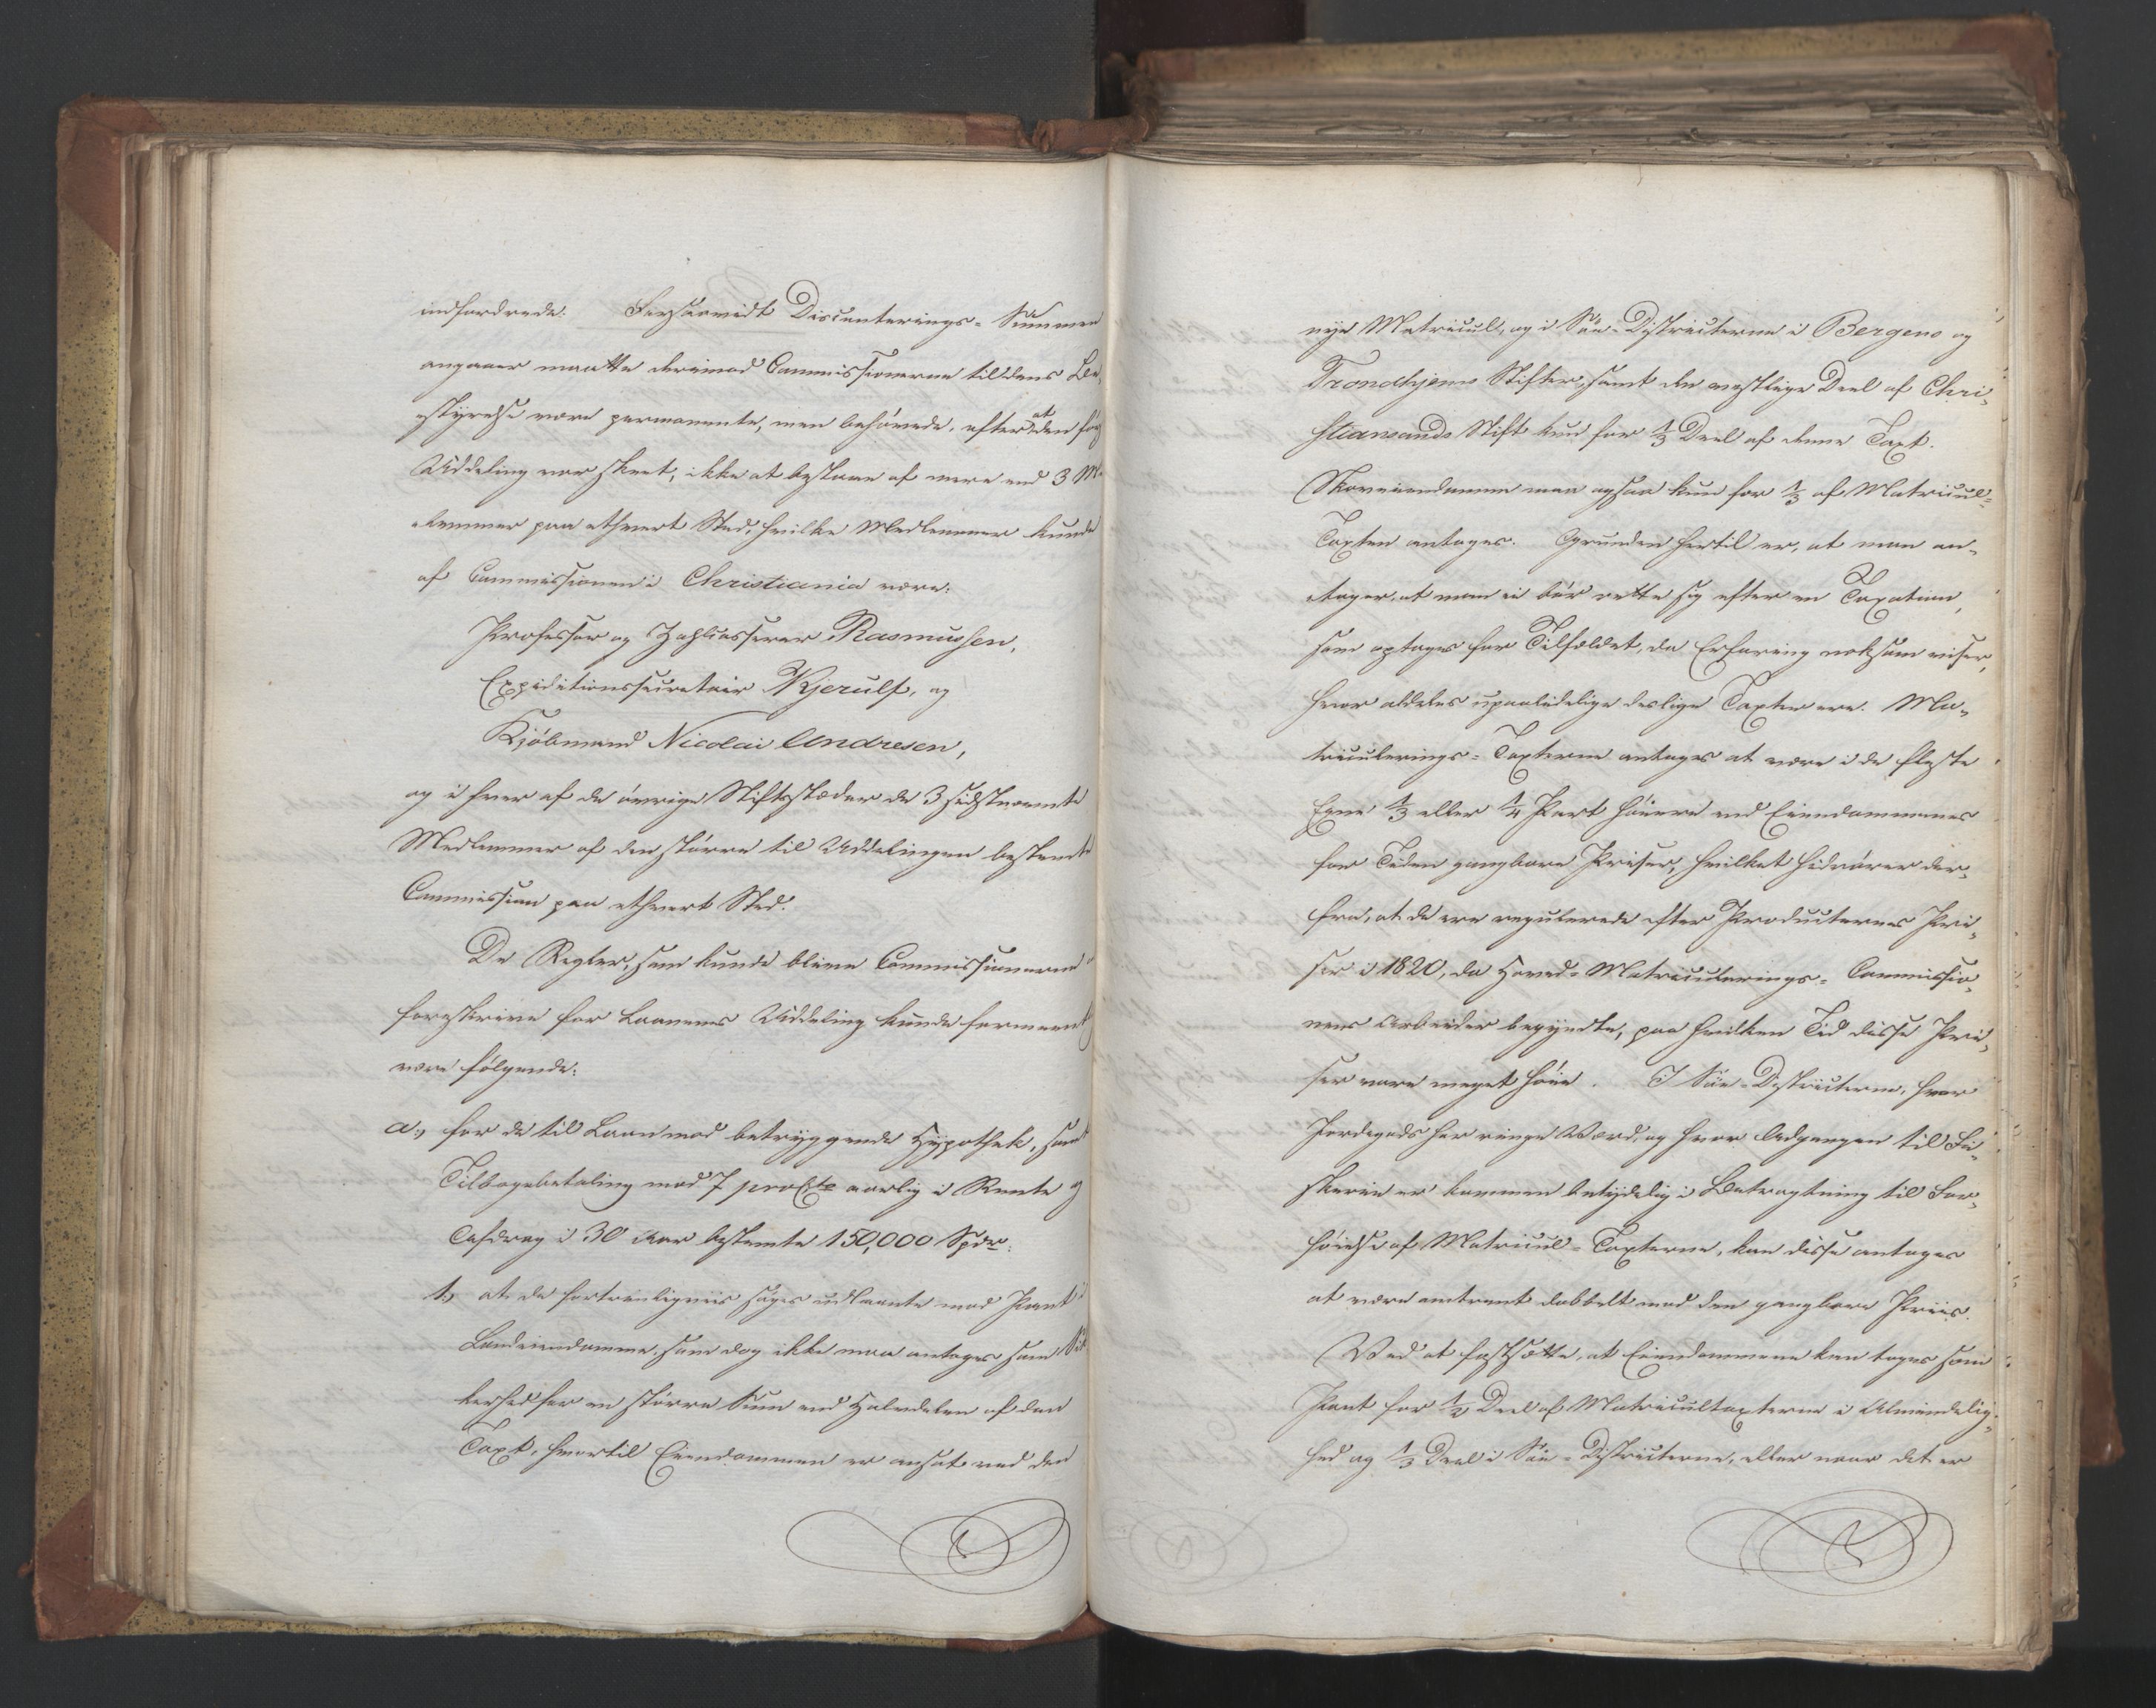 indfordrede. Forsaavidt Discunterings-Summen
angaaer maatte derimod Commissionerne til dens Be-
styrelse være permanente, men behövede, efterat den förste
Uddeling var skeet, ikke at bestaae af mere end 3 Med-
lemmer paa ethvert Sted, hvilke Medlemmer kunde
af Commissionen i Christiania være:
Professor og Zahlcasserer Rasmussen,
Expeditionssecretair Kjerulf, og
Kjöbmand Nicolai Andresen,
og i hver af de övrige Stiftsstæder de 3 sidstnævnte
Medlemmer af den större til Uddelingen bestemte
Commission paa ethvert Sted.
De Regler, som kunde blive Commissionerne
foreskrive for Laanenes Uddeling kunde formeentlig
være fölgende:
a., for de til Laan mod betryggende Hypothek, samt
Tilbagebetaling med 7 proCto aarlig i Rente og
Afdrag i 30 Aar bestemte 150,000 Spdr.
1., at de fortrinligviis söges udlaante mod Pant i
Landeiendomme, som dog ikke maa antages som Sik-
kerhed for en större Sum end Halvdelen af den
Taxt, hvortil Eiendommen er ansat ved den
nye Matricul, og i Söe-Districterne i Bergens og
Trondhjems Stifter, samt den vestlige Deel af Chri-
stiansands Stift kun for 1/3 Deel af denne Taxt.
Skoveiendomme maa ogsaa kun for 1/3 af Matricul-
Taxten antages. Grunden hertil er, at man an-
tager, at man ei bör rette sig efter en Taxation,
som optages for Tilfældet, da Erfaring noksom viser,
hvor aldeles upaalidelige deslige Taxter ere. Ma-
triculerings-Taxterne antages at være i de fleste
Egne 1/3 eller 1/4 Part höiere end Eiendommenes
for Tiden gangbare Priser, hvilket hidrörer der-
fra, at de ere regulerede efter Producternes Pri-
ser i 1820, da Hoved-Matriculerings-Commissio-
nens Arbeider begyndte, paa hvilken Tid disse Pri-
ser vare meget höie. I Söe-Districterne, hvor
Jordegods har ringe Værd, og hvor Adgangen til Fi-
skerie er kommen betydelig i Betragtning til For-
höielse af Matricul-Taxterne, kan disse antages
at være omtrent dobbelt mod den gangbare Priis.
Ved at fastsætte, at Eiendommene kan tages som
Pant for 1/2 Deel af Matricultaxterne i Almindelig-
hed og 1/3 Deel i Söe-Districterne, eller naar det er